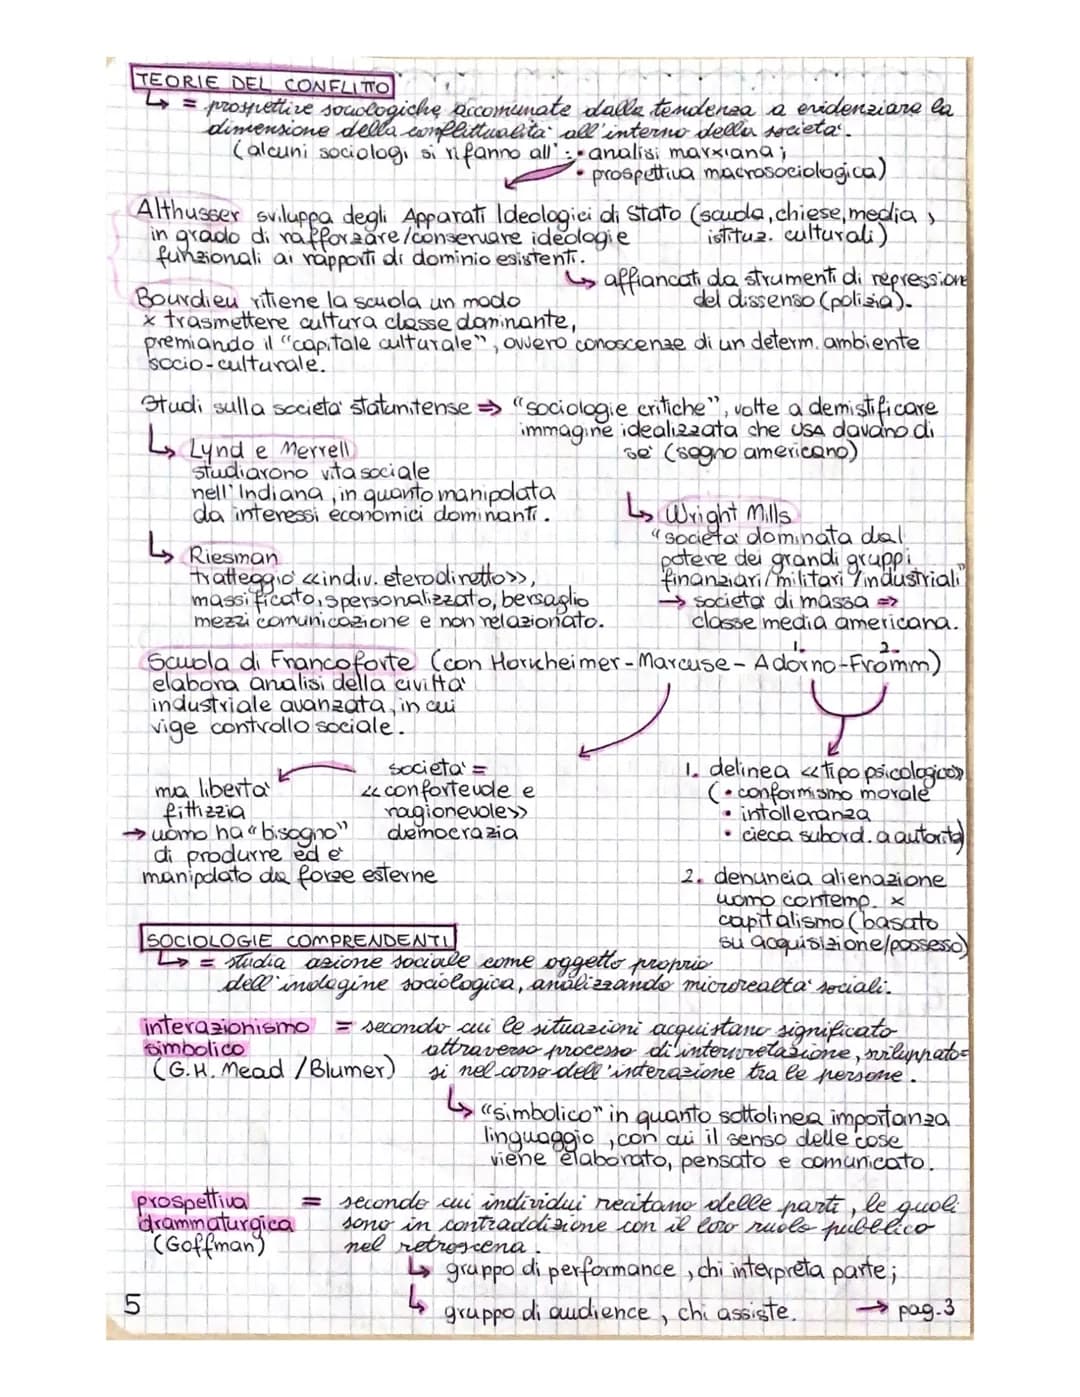 TEORIE DEL CONFLITTO
↳ = prospettive sociologiche accomunate dalla tendenza a evidenziare la
dimensione della conflittualità all'interno della società.
(alcuni sociologi si rifanno all': • analisi marxiana;
• prospettiva macrosociologica)
Althusser sviluppa degli Apparati Ideologici di Stato (scuola, chiese, media,
in grado di rafforzare/conservare ideologie istituz. culturali)
funzionali ai rapporti di dominio esistenti.
↳ affiancati da strumenti di repressione
del dissenso (polizia).
Bourdieu ritiene la scuola un modo
x trasmettere cultura classe dominante,
premiando il "capitale culturale", ovvero conoscenze di un determ. ambiente
socio-culturale.
Studi sulla società statunitense ⇒ "sociologie critiche", volte a demistificare
immagine idealizzata che USA davano di
sè (sogno americano)
↳ Lynd e Merrell
studiarono vita sociale
nell'Indiana, in quanto manipolata
da interessi economici dominanti.
↳ Riesman
tratteggiò «indiv. eterodiretto»,
massificato, spersonalizzato, bersaglio
mezzi comunicazione e non relazionato.
↳ Wright Mills
"società dominata dal
potere dei grandi gruppi
finanziari/militari/industriali"
→ società di massa ⇒
classe media americana.
1. 2.
Scuola di Francoforte (con Horkheimer-Marcuse-Adorno-Fromm)
elabora analisi della civiltà
industriale avanzata, in cui
vige controllo sociale.
società =
«confortevole e
ragionevole»
democrazia
ma libertà
fittizzia
→ uomo ha "bisogno"
di produrre ed è
manipolato da forze esterne
1. delinea «tipo psicologico»
(• conformismo morale
• intolleranza
• cieca subord. a autorità)
2. denuncia alienazione
uomo contemp. x
capitalismo (basato
su acquisizione/possesso)
SOCIOLOGIE COMPRENDENTI
↳ = studia azione sociale come oggetto proprio
dell'indagine sociologica, analizzando microrealtà sociali.
interazionismo = secondo cui le situazioni acquistano significato
simbolico attraverso processo di interpretazione, sviluppato=
(G.H. Mead / Blumer) si nel corso dell'interazione tra le persone.
↳ "simbolico" in quanto sottolinea importanza
linguaggio, con cui il senso delle cose
viene elaborato, pensato e comunicato.
prospettiva = secondo cui individui recitano delle parti, le quali
drammaturgica sono in contraddizione con il loro ruolo pubblico
(Goffman) nel retroscena.
↳ gruppo di performance, chi interpreta parte;
↳ gruppo di audience, chi assiste.
5 → pag.3